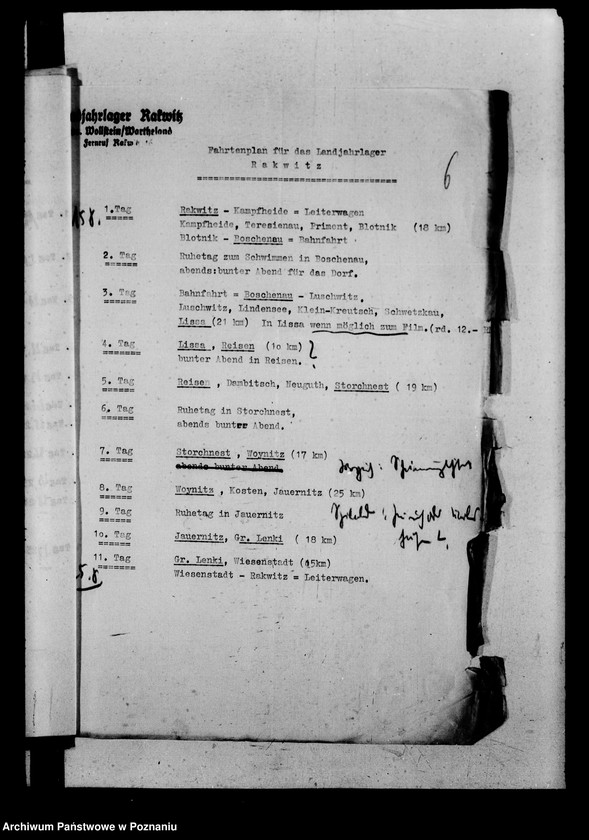 jahrlager Rakwitz
Wollstein/Wartheland
Fernruf Rakw
6
Fahrtenplan für das Landjahrlager
Rakwitz
1.Tag Rakwitz - Kampfheide = Leiterwagen
Kampfheide, Teresienau, Priment, Blotnik (18 km)
Blotnik - Boschenau = Bahnfahrt
2. Tag Ruhetag zum Schwimmen in Boschenau,
abends:bunter Abend für das Dorf.
3. Tag Bahnfahrt = Boschenau - Luschwitz,
Luschwitz, Lindensee, Klein-Kreutsch, Schwetzkau,
Lissa (21 km) In Lissa wenn möglich zum Film.(rd. 12.-
4. Tag Lissa , Reisen (10 km)
bunter Abend in Reisen.
5. Tag Reisen , Dambitsch, Neuguth, Storchnest ( 19 km)
6. Tag Ruhetag in Storchnest,
abends bunter Abend.
7. Tag Storchnest , Woynitz (17 km)
abends bunter Abend
8. Tag Woynitz , Kosten, Jauernitz (25 km)
9. Tag Ruhetag in Jauernitz
10. Tag Jauernitz, Gr. Lenki ( 18 km)
11. Tag Gr. Lenki, Wiesenstadt (15km)
Wiesenstadt - Rakwitz = Leiterwagen.
Archiwum Państwowe w Poznaniu